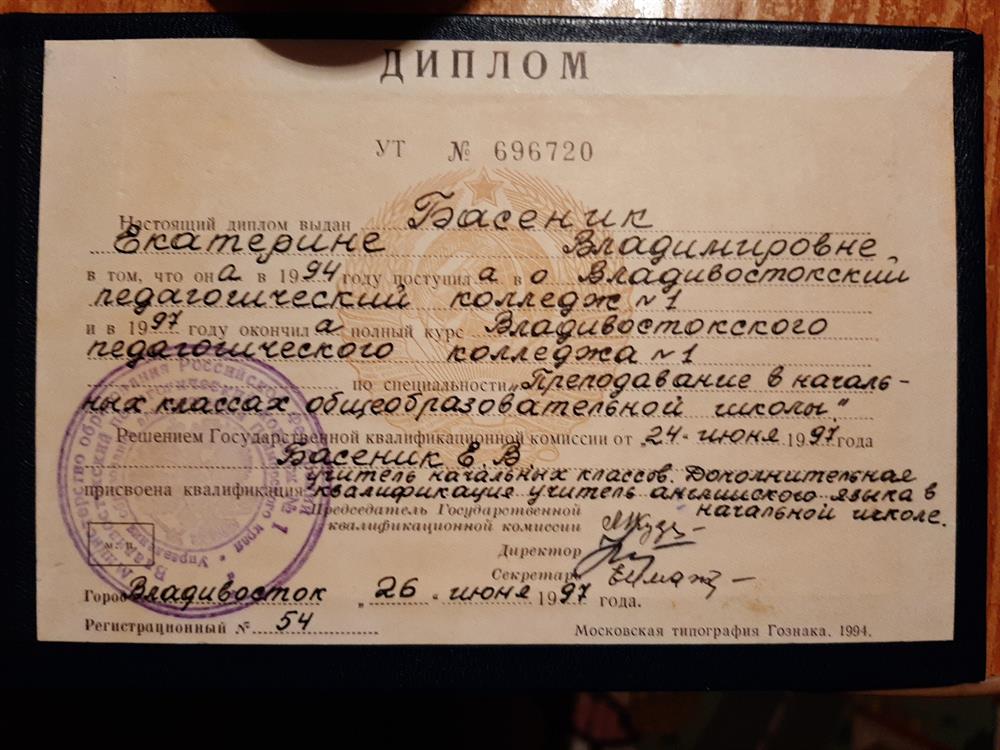 ДИПЛОМ
УТ № 696720
Настоящий диплом выдан Басеник
Екатерине Владимировне
в том, что она в 1994 году поступила в о Владивостокский
педагогический колледж №1
и в 1997 году окончила полный курс Владивостокского
педагогического колледжа №1
по специальности „Преподавание в началь-
ных классах общеобразовательной школы".
Решением Государственной квалификационной комиссии от 24 июня 1997 года
Басеник Е. В.
учитель начальных классов. Дополнительная
присвоена квалификация квалификация учитель английского языка в
начальной школе.
Председатель Государственной
квалификационной комиссии
Директор
Секретарь
Город Владивосток „26" июня 1997 года.
Регистрационный № 54
Московская типография Гознака. 1994.